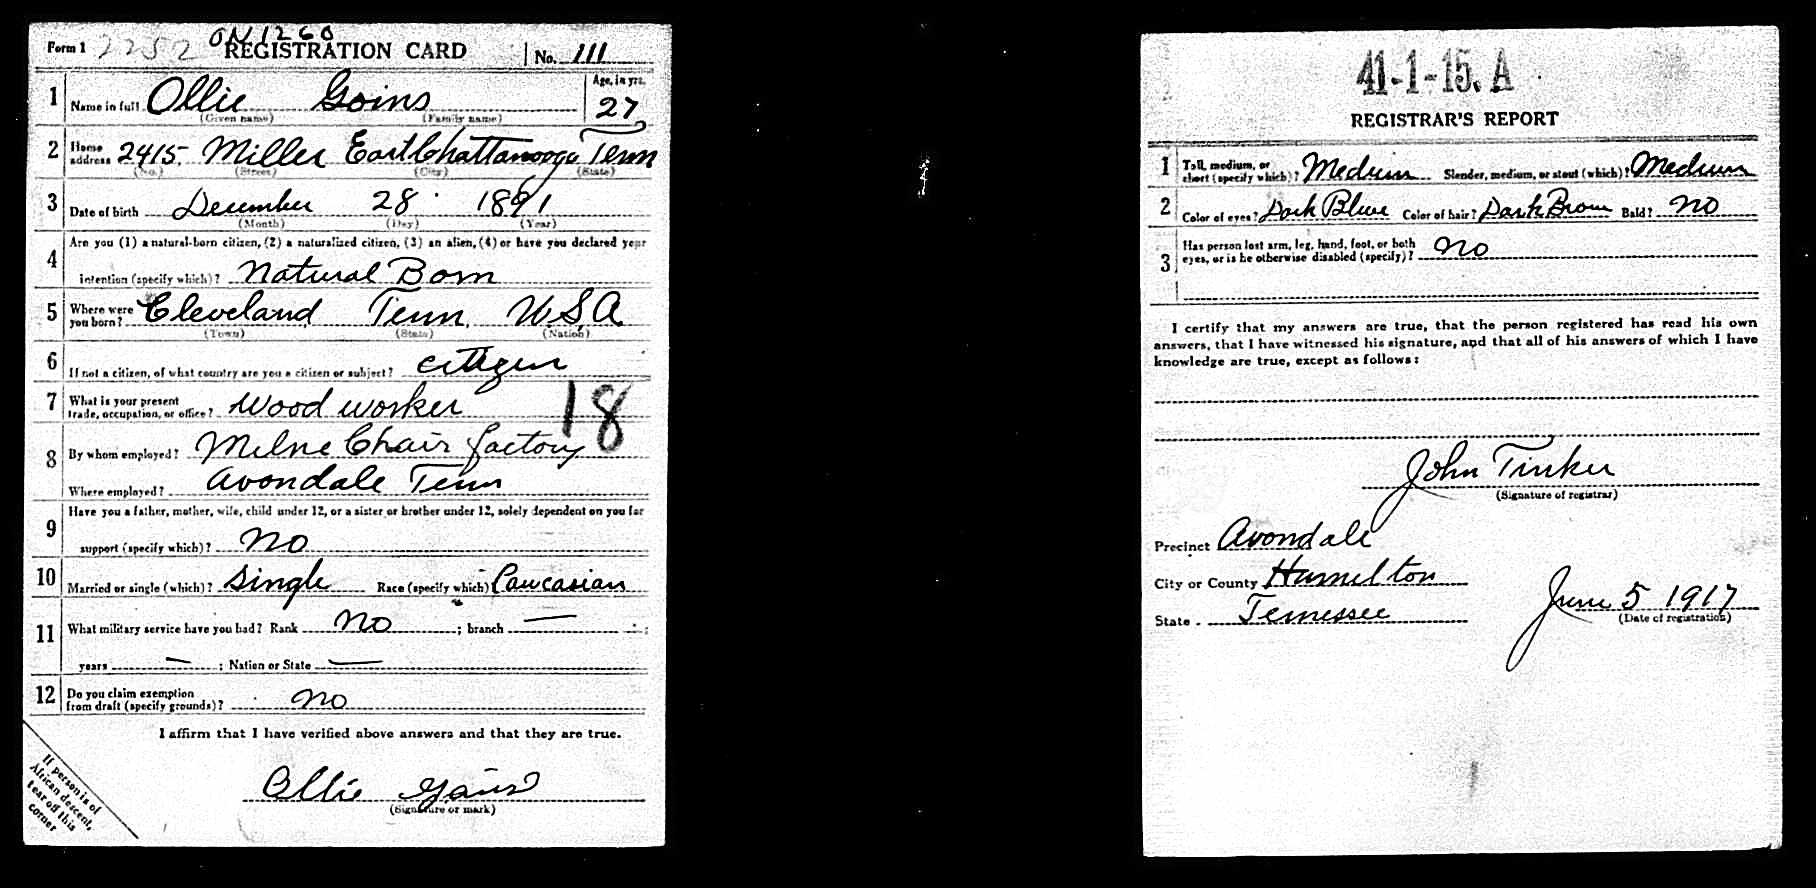 Form 1 2252 ON 1260
REGISTRATION CARD No. 111
1 Name in full Ollie Goins Age, in yrs. 27
(Given name) (Family name)
2 Home address 2415 Miller East Chattanooga Tenn
(No.) (Street) (City) (State)
3 Date of birth December 28 1891
(Month) (Day) (Year)
4 Are you (1) a natural-born citizen, (2) a naturalized citizen, (3) an alien, (4) or have you declared your
intention (specify which)? Natural Born
5 Where were you born? Cleveland Tenn. U.S.A
(Town) (State) (Nation)
6 If not a citizen, of what country are you a citizen or subject? citizen
7 What is your present trade, occupation, or office? Wood worker
18
8 By whom employed? Milne Chair factory
Where employed? Avondale Tenn
9 Have you a father, mother, wife, child under 12, or a sister or brother under 12, solely dependent on you for
support (specify which)? No
10 Married or single (which)? Single Race (specify which) Caucasian
11 What military service have you had? Rank No ; branch — ;
years — ; Nation or State —
12 Do you claim exemption from draft (specify grounds)? No
I affirm that I have verified above answers and that they are true.
Ollie Goins
(Signature or mark)
If person is of
African descent,
tear off this
corner
41-1-15. A
REGISTRAR'S REPORT
1 Tall, medium, or short (specify which)? Medium Slender, medium, or stout (which)? Medium
2 Color of eyes? Dark Blue Color of hair? Dark Brown Bald? No
3 Has person lost arm, leg, hand, foot, or both
eyes, or is he otherwise disabled (specify)? No
I certify that my answers are true, that the person registered has read his own
answers, that I have witnessed his signature, and that all of his answers of which I have
knowledge are true, except as follows:
John Tinker
(Signature of registrar)
Precinct Avondale
City or County Hamilton
State Tennessee
June 5 1917
(Date of registration)